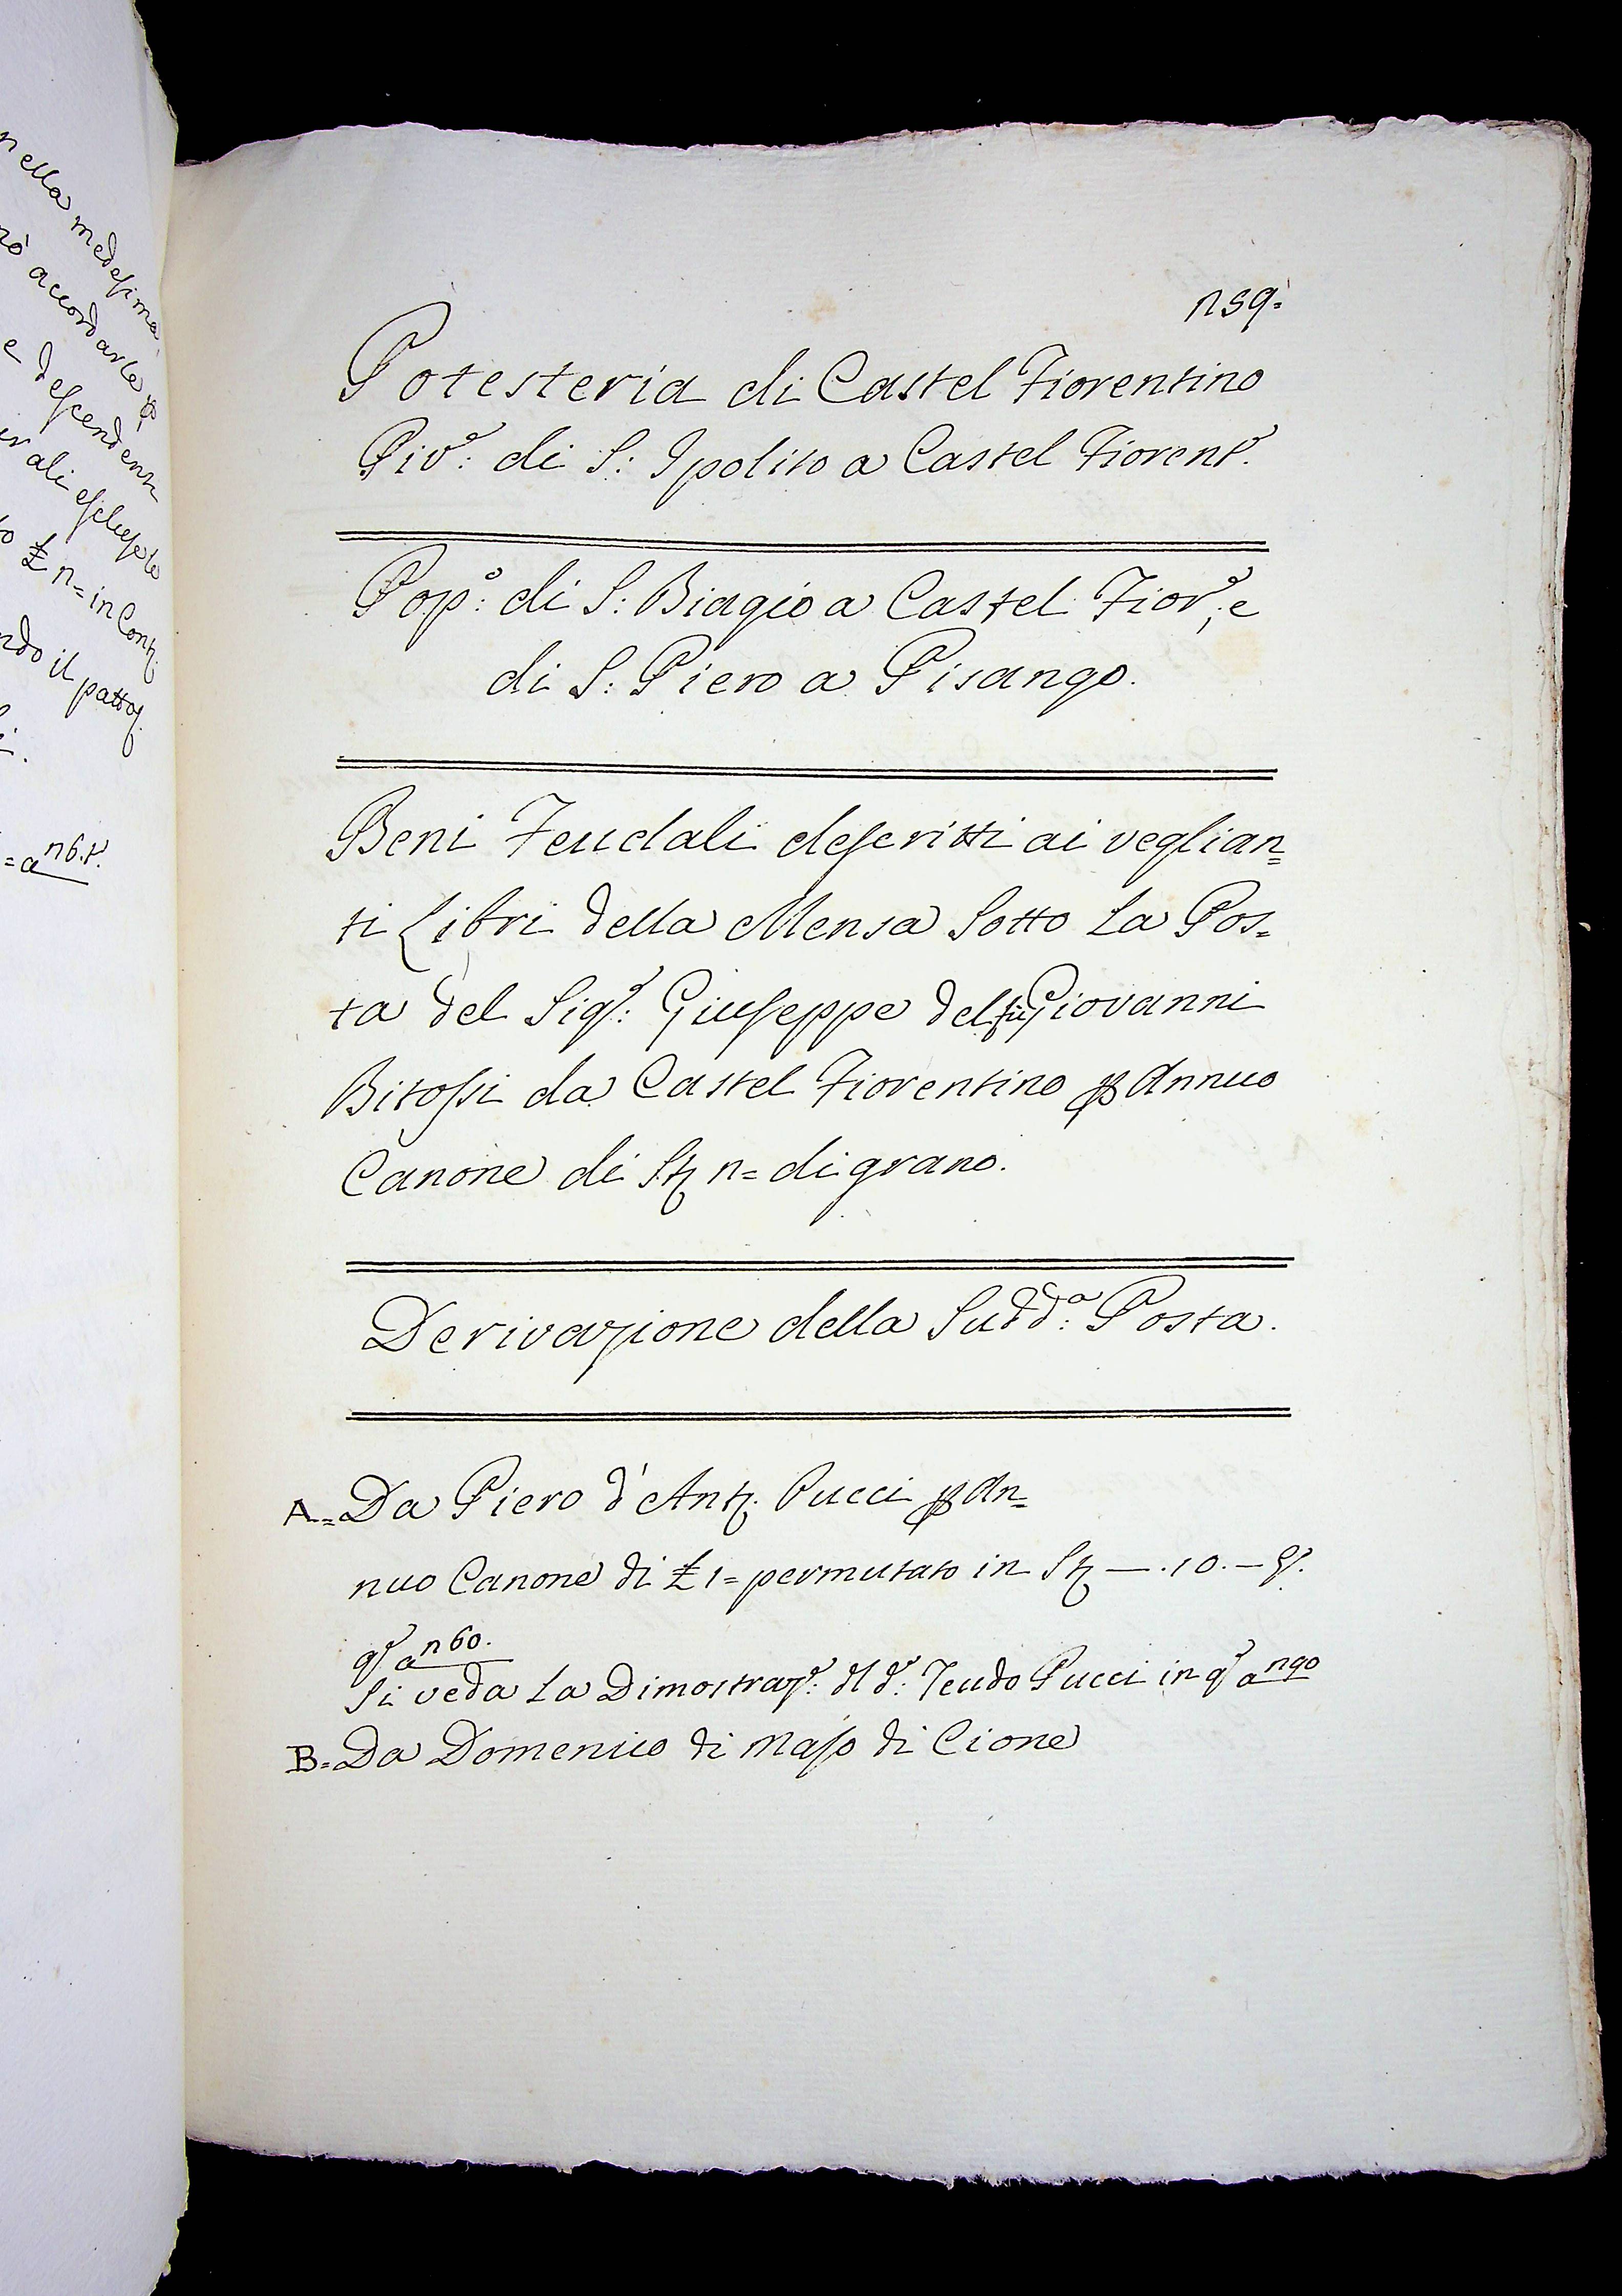 nella medesima,
nò accordarle p
e descendenti
ali escluse le
£ n= in Cont.
ndo il patto
= a n6.
n59.
Potesteria di Castel Fiorentino
Piv.e: di S: Ipolito a Castel Fiorent.o
Pop.o: di S: Biagio a Castel Fior.o; e
di S: Piero a Pisango.
Beni Feudali descritti ai veglian=
ti Libri della Mensa Sotto La Pos=
ta del Sig.e: Giuseppe del fù Giovanni
Bitossi da Castel Fiorentino p Annuo
Canone di St n= di grano.
Derivazione della Sudd.a: Posta.
A= Da Piero d'Ant. Pucci p An=
nuo Canone di £ 1= permutato in St —.10.—
a n60.
Si veda La Dimostraz.e: dl d.o: Feudo Pucci in q.o a n90
B= Da Domenico di Maso di Cione